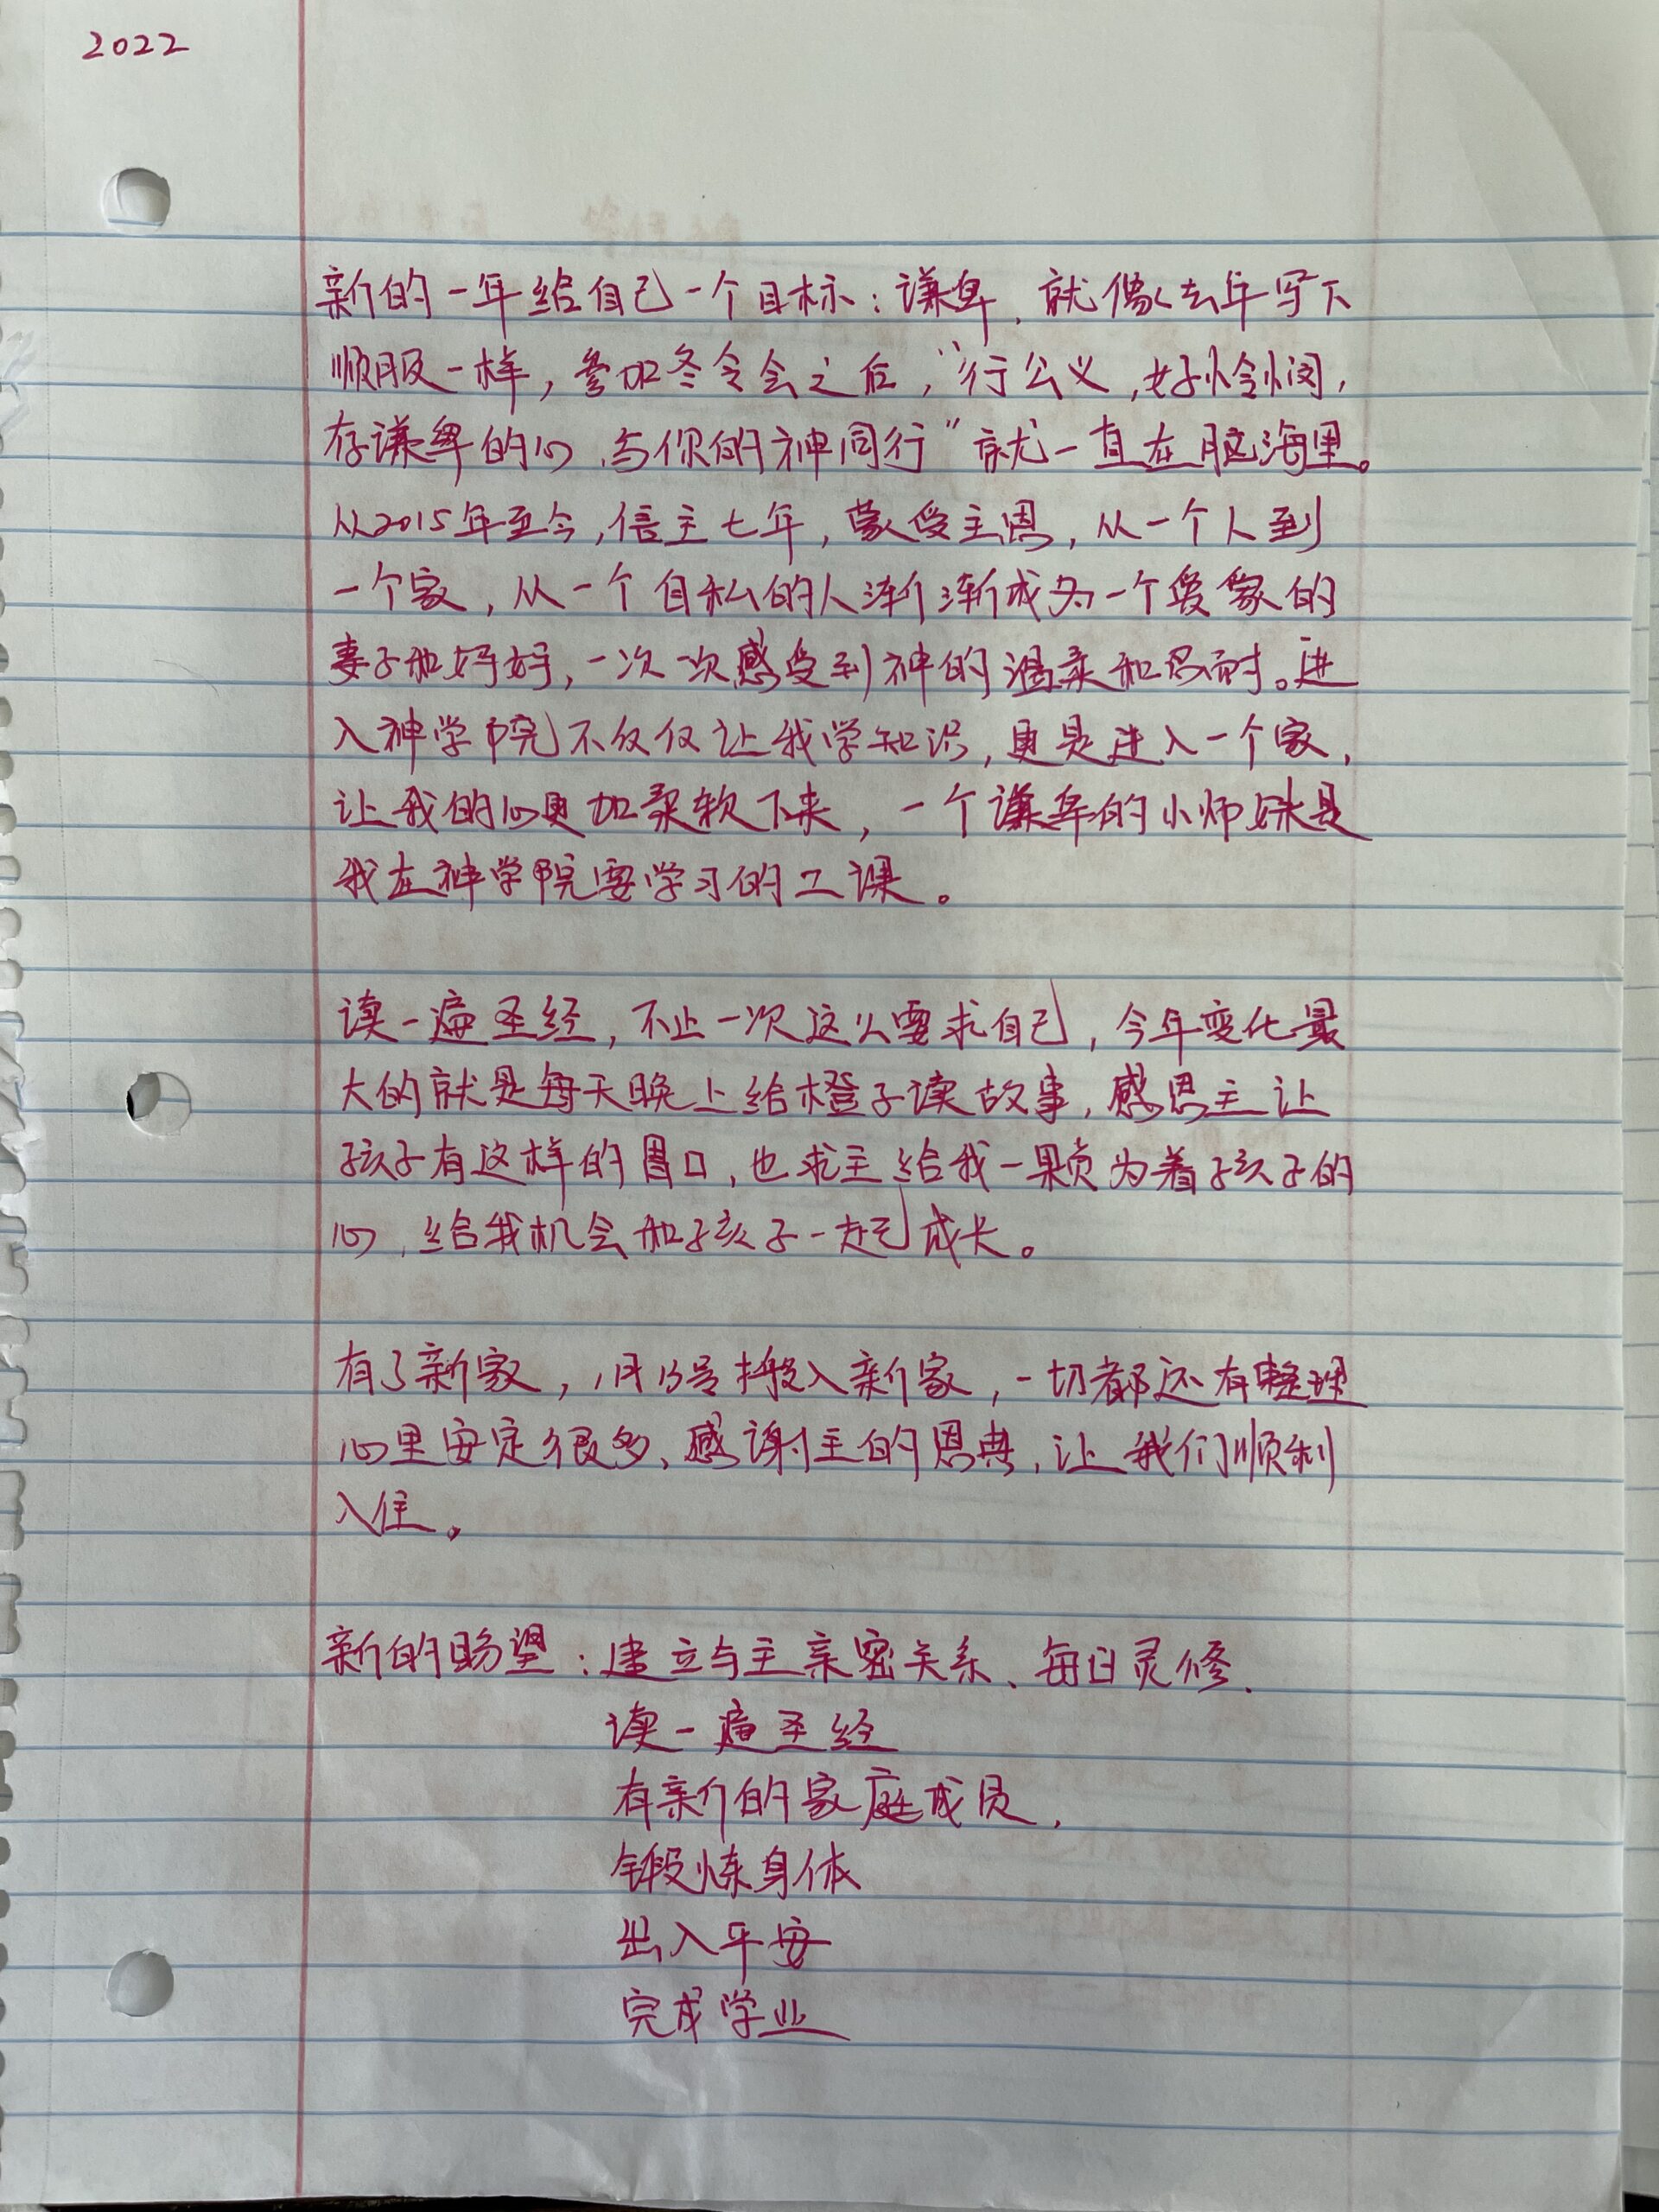 2022
新的一年给自己一个目标：谦卑，就像去年写下
顺服一样，参加冬令会之后，“行公义，好怜悯，
存谦卑的心，与你的神同行”就一直在脑海里。
从2015年至今，信主七年，蒙受主恩，从一个人到
一个家，从一个自私的人渐渐成为一个爱家的
妻子和妈妈，一次一次感受到神的温柔和忍耐。进
入神学院不仅仅让我学知识，更是进入一个家，
让我的心更加柔软下来，一个谦卑的小师妹是
我在神学院要学习的工课。
读一遍圣经，不止一次这么要求自己，今年变化最
大的就是每天晚上给橙子读故事，感恩主让
孩子有这样的胃口，也求主给我一颗为着孩子的
心，给我机会和孩子一起成长。
有了新家，1月15号搬入新家，一切都还有整理
心里安定很多，感谢主的恩典，让我们顺利
入住。
新的盼望：建立与主亲密关系、每日灵修、
读一遍圣经
有新的家庭成员，
锻炼身体
出入平安
完成学业